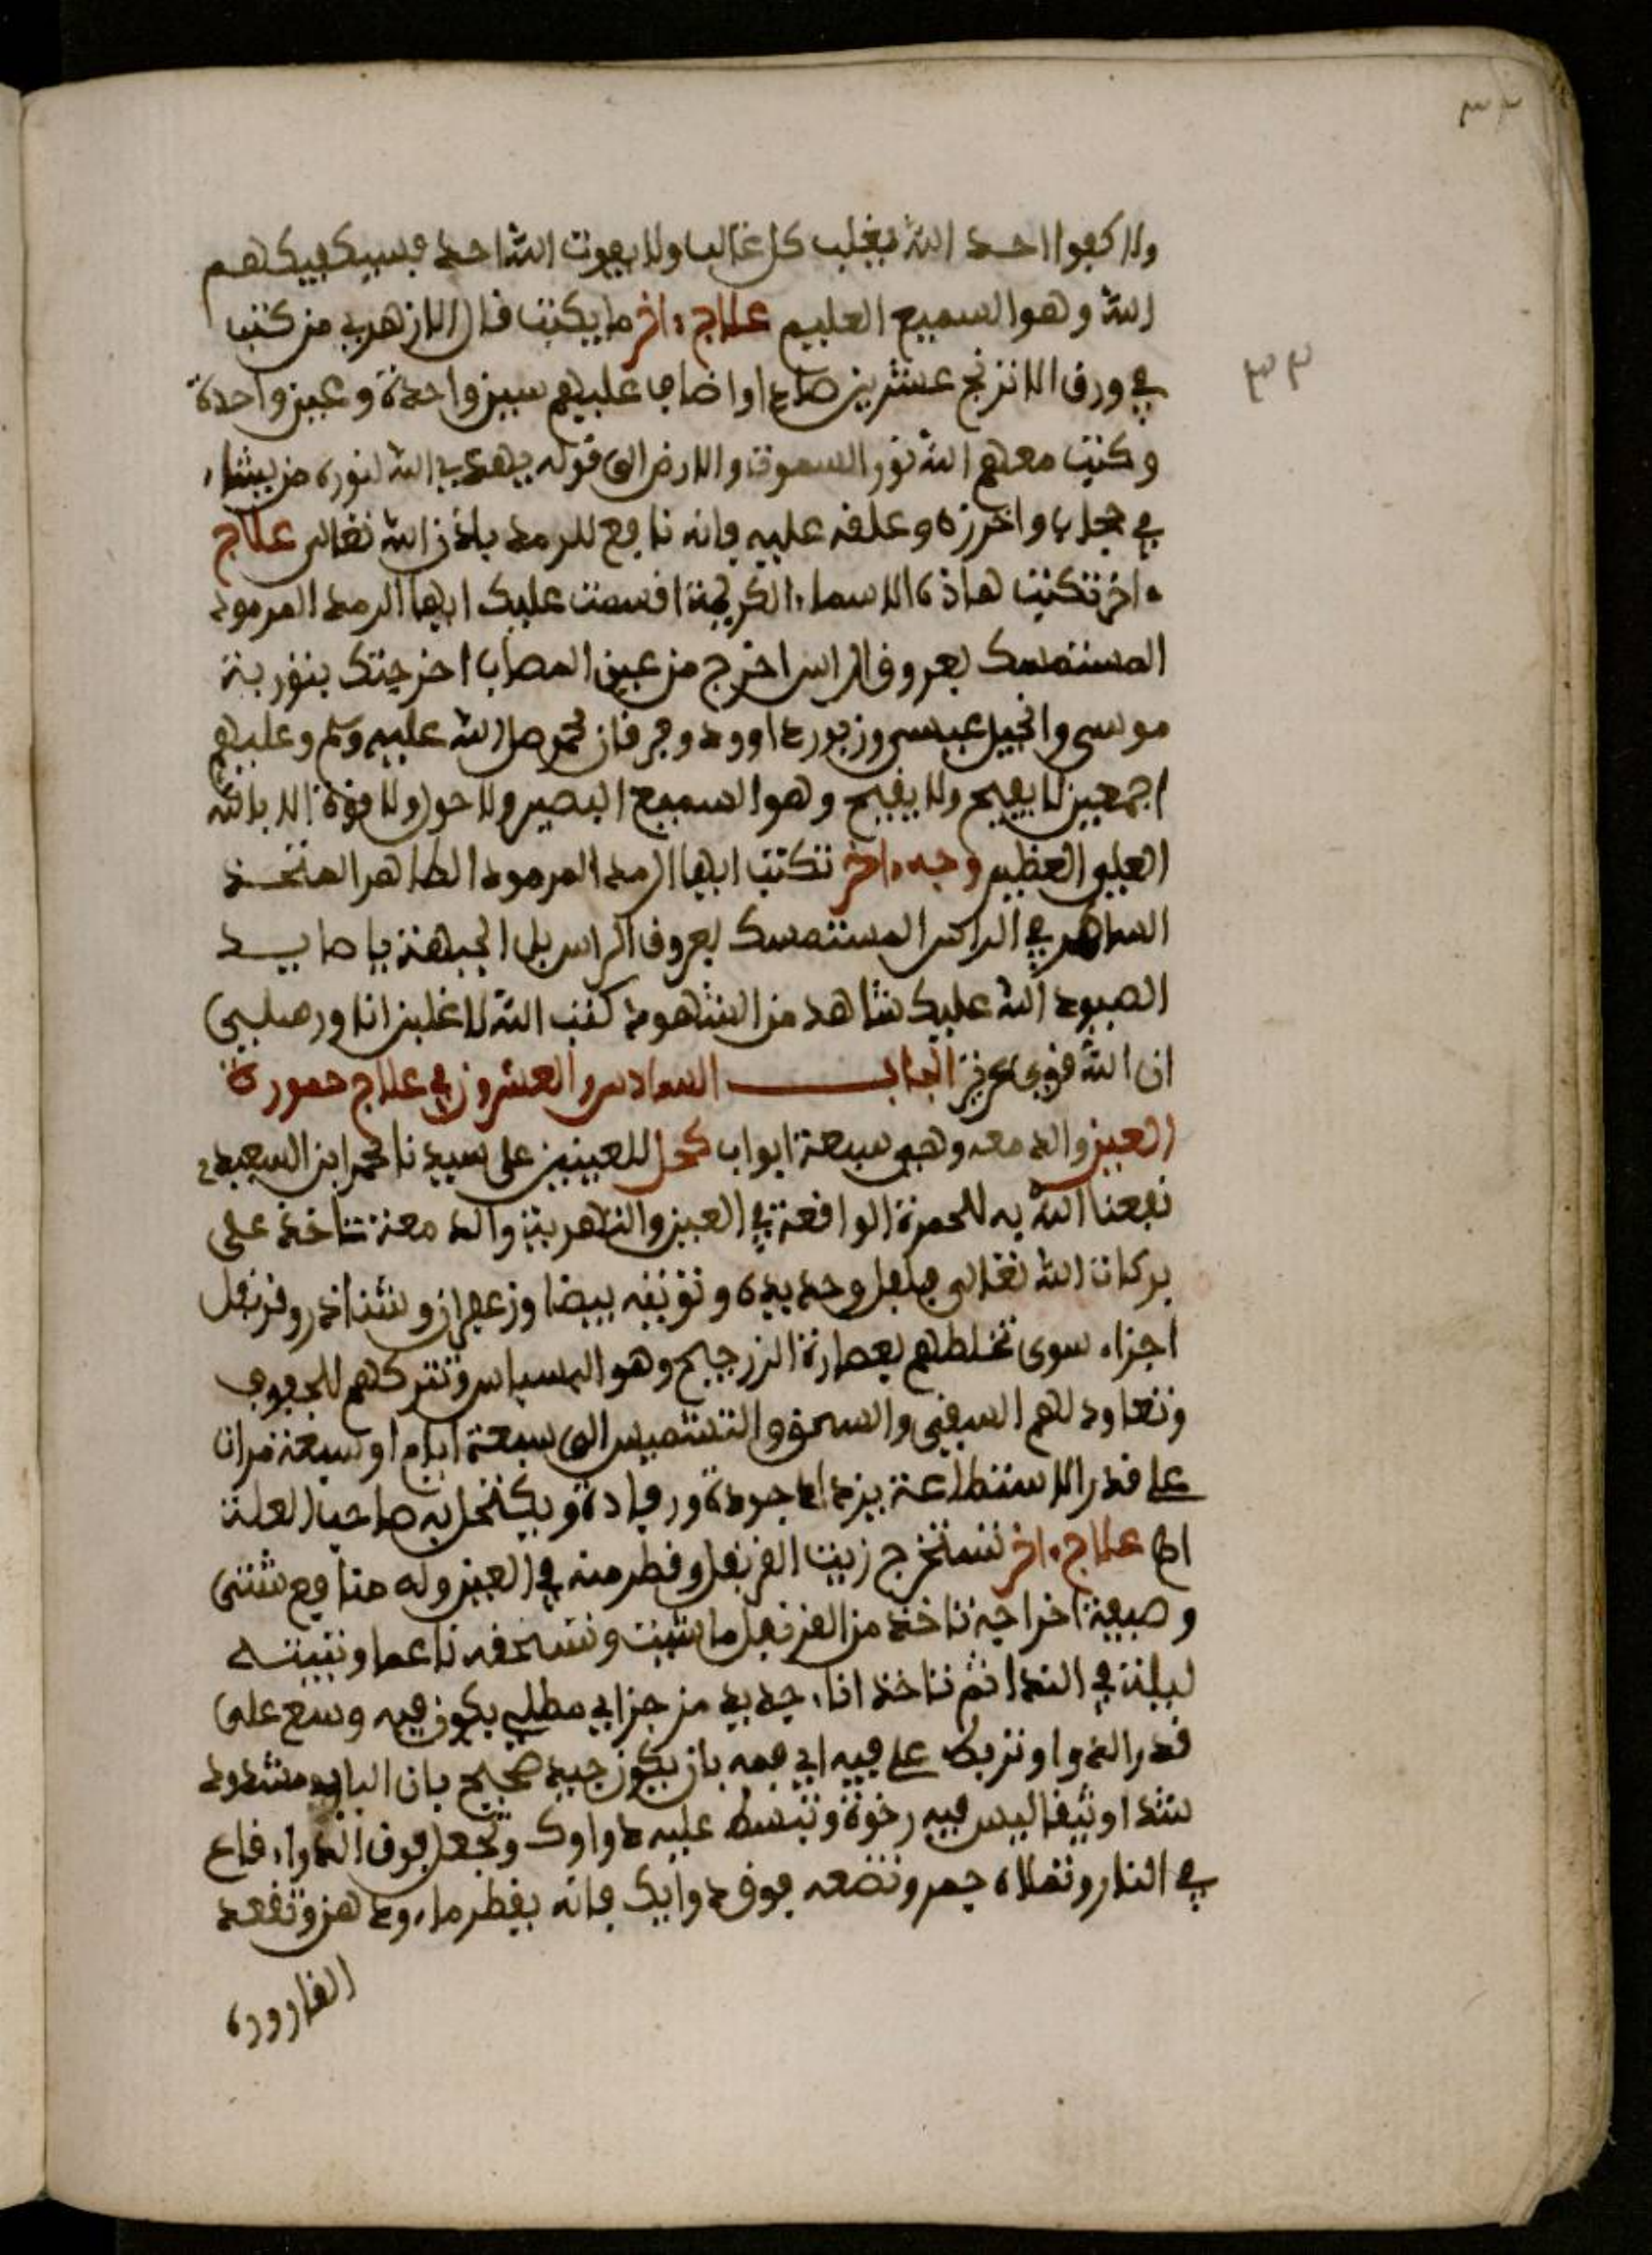 ٣٣
٣٣
ولا كفوا احد الله يغلب كل غالب ولا يفوت الله احد فسيكفيكهم
الله وهو السميع العليم علاج ءاخر ما يكتب قال الازهري من كتب
في ورق الاترنج عشرين صاد اواضاف عليهم سين واحدة وعين واحدة
وكتب معهم الله نور السموت والارض الى قوله يهدي الله لنوره من يشاء
في جلد واخرزه وعلقه عليه فانه نافع للرمد باذن الله تعالى علاج
ءاخر تكتب هاذه الاسماء الكريمة اقسمت عليك ايها الرمد المرمود
المستمسك بعروق الراس اخرج من عين المصاب اخرجتك بتورية
موسى وانجيل عيسى وزبور داوود وفرقان محمد صلى الله عليه وسلم وعليهم
اجمعين لا يفيح ولا يقيح وهو السميع البصير ولا حول ولا قوة الا بالله
العلي العظيم وجه ءاخر تكتب ايها الرمد المرمود الطاهر المتخذ
الساهر في الراس المستمسك بعروق الراس بل الجبهة يا صايد
الصيود الله عليك شاهد من الشهود كتب الله لاغلبن انا ورسلي
ان الله قوي عزيز الباب السادس والعشرون في علاج حمورة
العين والدمعه وهي سبعة ابواب كحل للعينين على سيدنا محمد ابن السعيد
نفعنا الله به للحمرة الواقعة في العين والشعرية والدمعة تاخذ على
بركات الله تعالى فلفل وحديدة وتوتيه بيضا وزعفران وشناذر وقرنفل
اجزاء سوى تخلطهم بعصارة الزرجيح وهو البسباس وتتركهم للجفوف
وتعاود لهم السقي والسحق والتشميس الى سبعة ايام او سبعة مرات
على قدر الاستطاعة يزداد جودة ورفادة ويكتحل به صاحب العلة
اه علاج ءاخر تستخرج زيت القرنفل وقطر منه في العين وله منافع شتى
وصيفة اخراجه تاخذ من القرنفل ما شيت وتسحقه ناعما وتبيته
ليلة في الندا ثم تاخذ اناء جديد من جزاي مطلي يكون فيه وسع على
قدر الدوا وتربط على فيه اي فمه بان يكون جيد صحيح بان اليابد مشدود
شدا وثيقا ليس فيه رخوة وتبسط عليه دواوك وتجعل فوق الدواء قاع
في النار وتملاه جمر وتضعه فوق دوايك فانه يقطر ماء ودهن وتفقد
القارورة